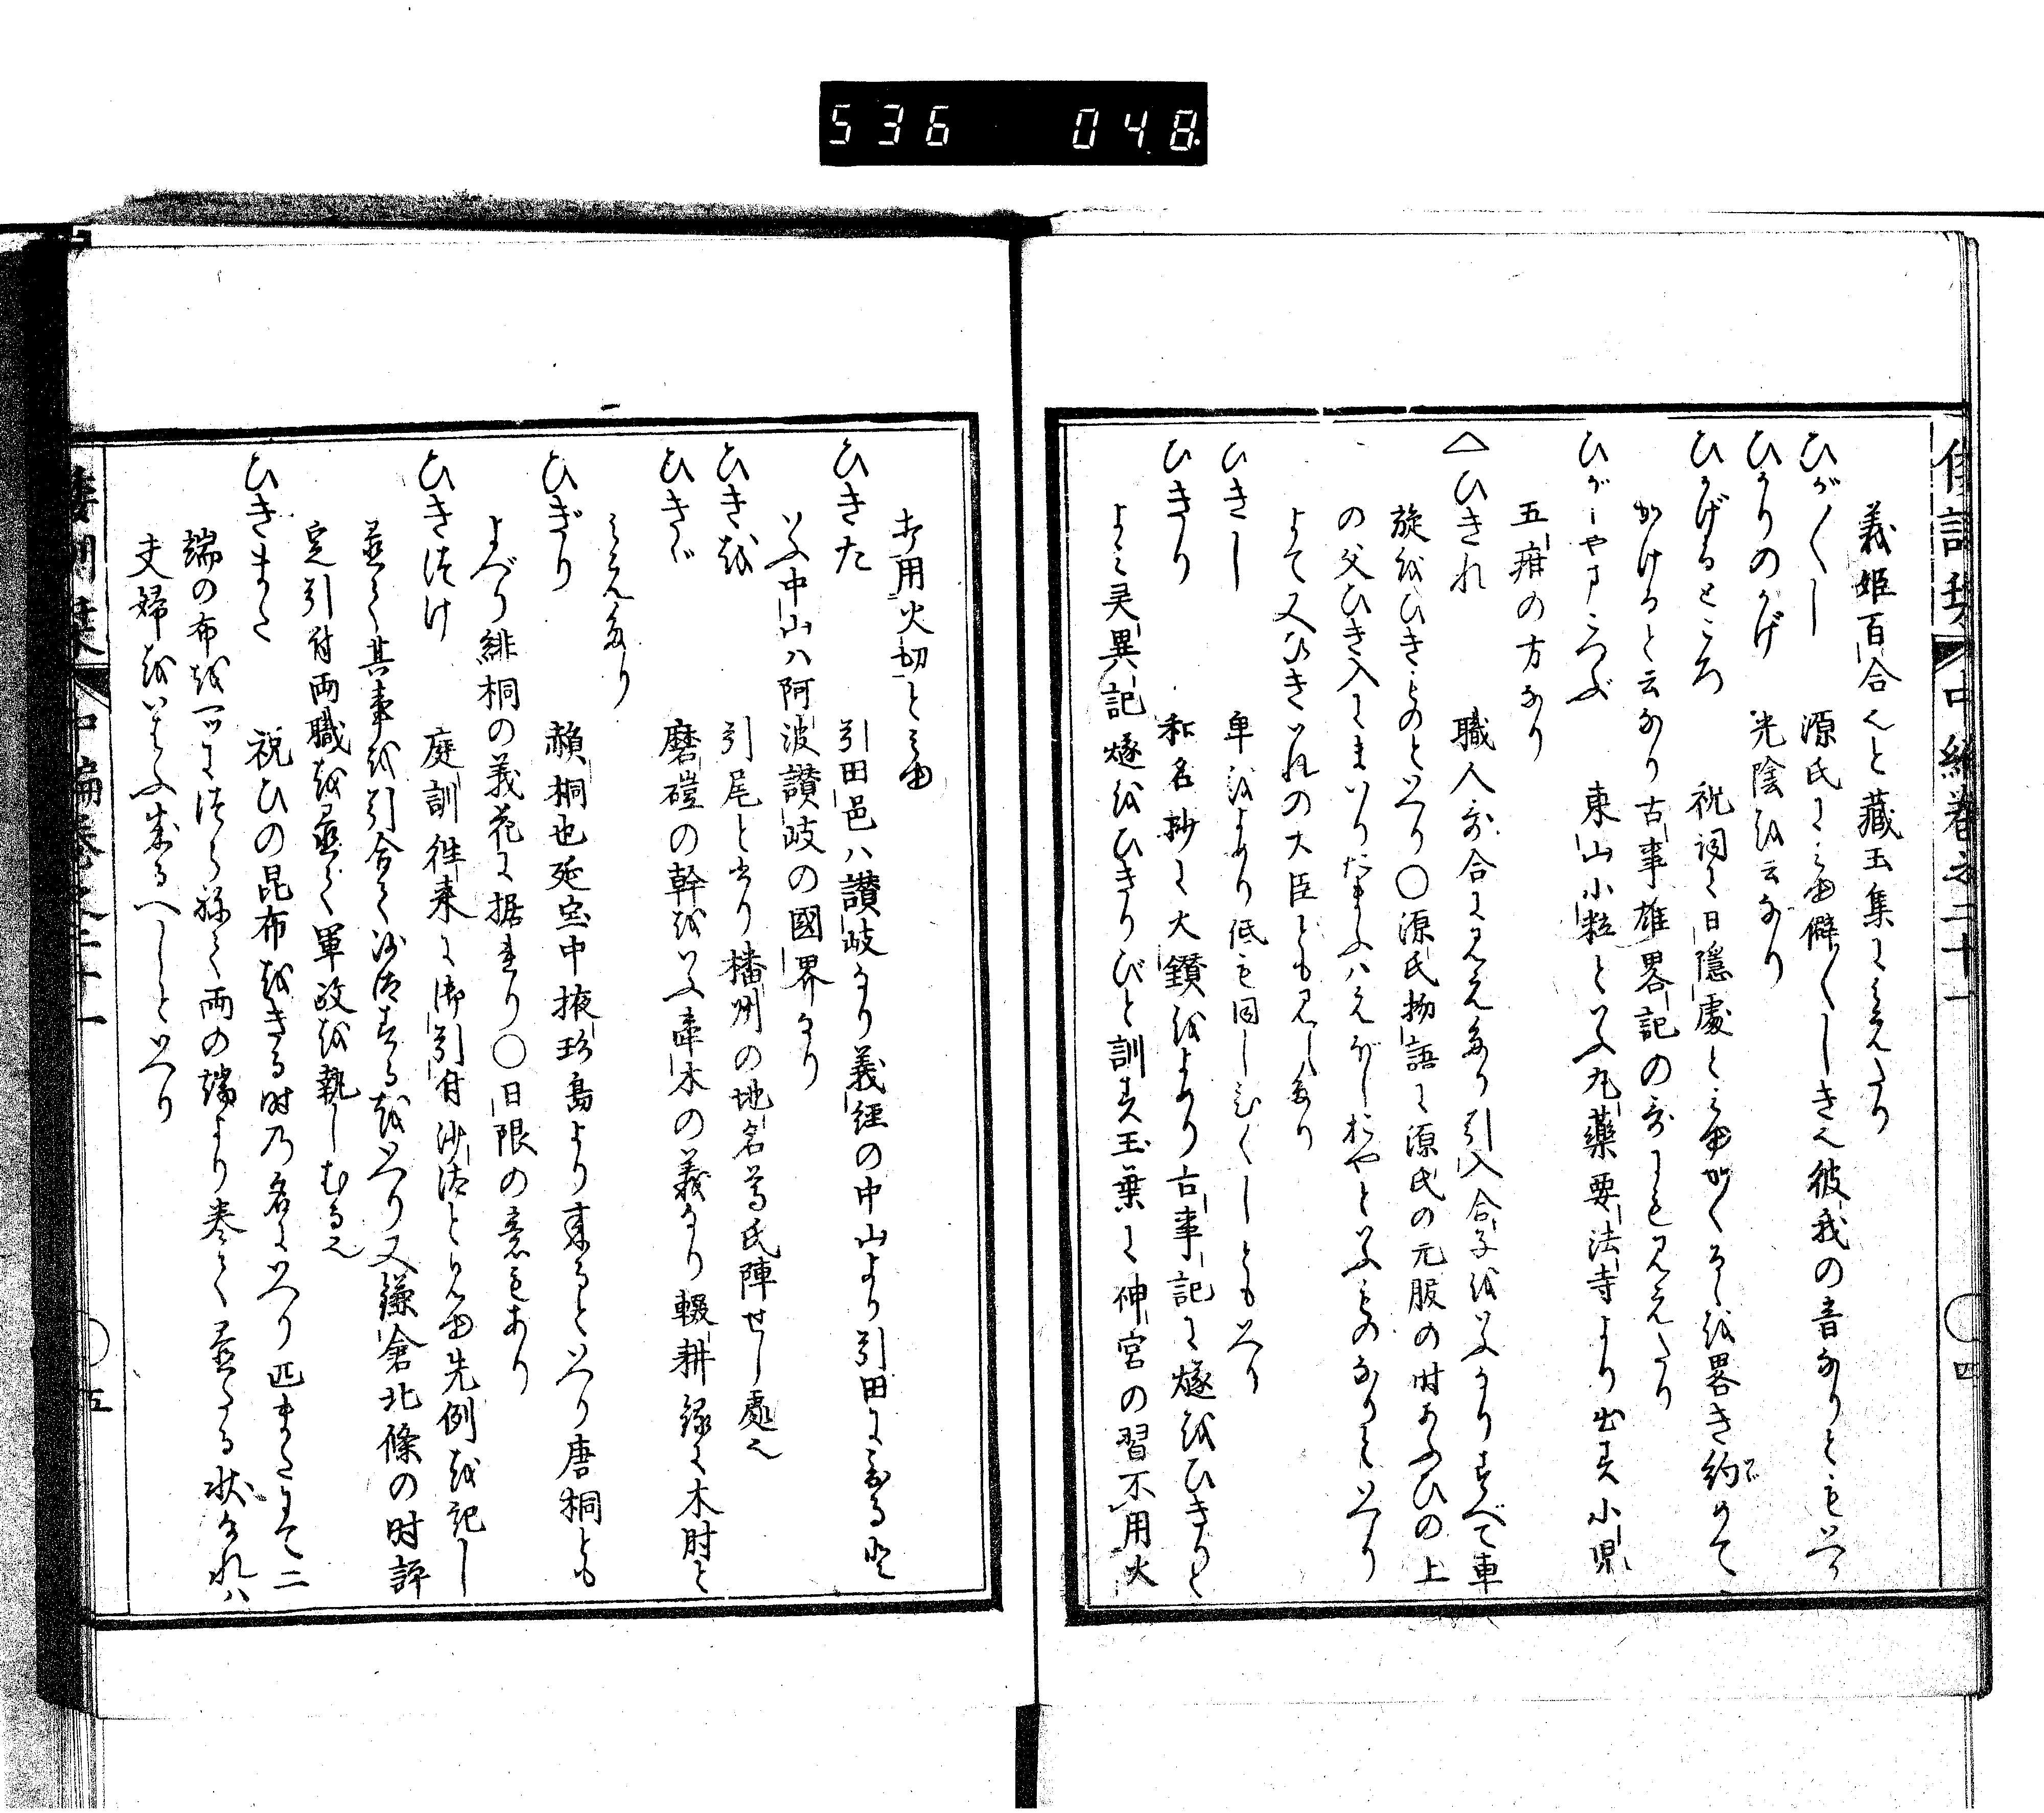 536 048
義姫百合也と藏玉集にみえたり
ひが〱し 源氏にみゆ僻〱しき也彼我の音なりともいへり
ひかりのかげ 光陰を云なり
ひかげるところ 祝詞に日隱處とみゆかくるを畧き約めて
かけると云なり古事雄畧記の哥にも見えたり
ひがしやまこつぶ 東山小粒といふ丸藥要法寺より出す小児
五疳の方なり
△ひきれ 職人哥合に見えたり引入合子をいふなりすべて車
旋をひきものといへり○源氏物語に源氏の元服の時あふひの上
の父ひき入にまいりたまふハえぼしおやといふものなりといへり
よて又ひきいれの大臣とも見えたり
ひきし 卑をよめり低も同しひくしともいへり
ひきり 和名抄に火鑽をよめり古事記に燧をひきりと
よミ灵異記燧をひきりびと訓す玉葉に神宮の習不用火
打用火切とみゆ
ひきた 引田邑ハ讃岐なり義経の中山より引田に至ると
いふ中山ハ阿波讃岐の國界なり
ひきを 引尾と書り播州の地名尊氏陣せし處也
ひきぎ 磨磑の幹をいふ牽木の義なり輟耕録に木肘と
みえたり
ひぎり 赬桐也延宝中掖玖島より来るといへり唐桐とも
よべり緋桐の義花に据れり○日限の意もあり
ひきつけ 庭訓徃来に御引付沙法とみゆ先例を記し
並て其事を引合て沙法するをいへり又鎌倉北條の時評
定引付両職を並て軍政を執しむる也
ひきまた 祝ひの昆布をきる時乃名にいへり匹またにて二
端の布を一ツにつらねて両の端より巻て並たる状なれハ
夫婦をいはふ成るへしといへり
四
五